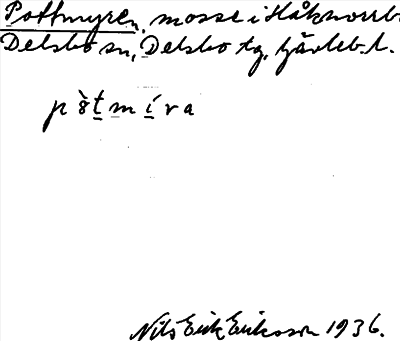 Pottmyren, mosse i Håknorrb
Delsbo sn, Delsbo tg, Gävleb. l.
pòtmíra
Nils Erik Eriksson 1936.